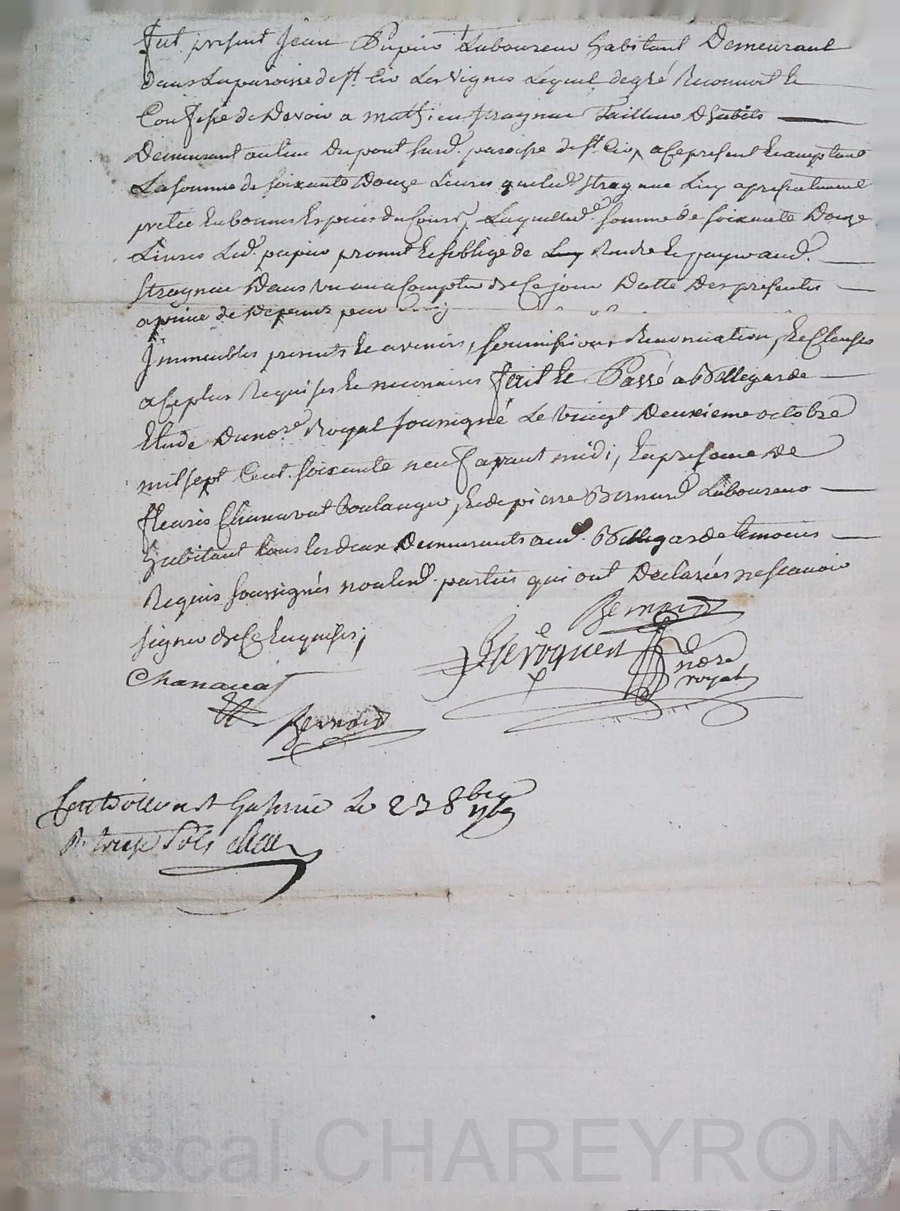 fut présent Jean Pupier Laboureur habitant Demeurant
dans la paroisse de st. Cir Les vignes Lequel degré Reconnoit et
Confesse de Devoir a mathieu stragnac Tailleur D'habits
Demeurant au lieu du pont sur d. paroisse de st. Cir, a ce présent Et acceptant
La somme de soixante Douze Livres que led. stragnac Luy a présentement
prêtée En bonnes Espèces du Cours, Laquelle d.e somme de soixante Douze
Livres Led. pupier promet et soblige de Rendre et payer aud.
stragnac Dans un an a Compter de Ce jour Datte Des présentes
a peine de Dépens pour
Immeubles présents Et avenirs, soumissions Renonciation, Et Clauses
a Ce plus Requises Et nécessaires fait Et Passé a Bellegarde
Etude Du no.re Royal soussigné Le vingt Deuxième octobre
mil sept Cent soixante neuf avant midi, En présence de
fleuris Chanavat boulanger, Et de pierre Bernard Laboureur
habitant tous les deux Demeurants aud. Bellegarde témoins
Requis soussignés non lesd. parties qui ont Déclarées ne scavoir
signer de Ce Enquises;
Bernard
Chanavat
no.re
royal
Bernard
Controllé a st Galmier Le 23 8bre 1769
R. treize sols
Pascal CHAREYRON